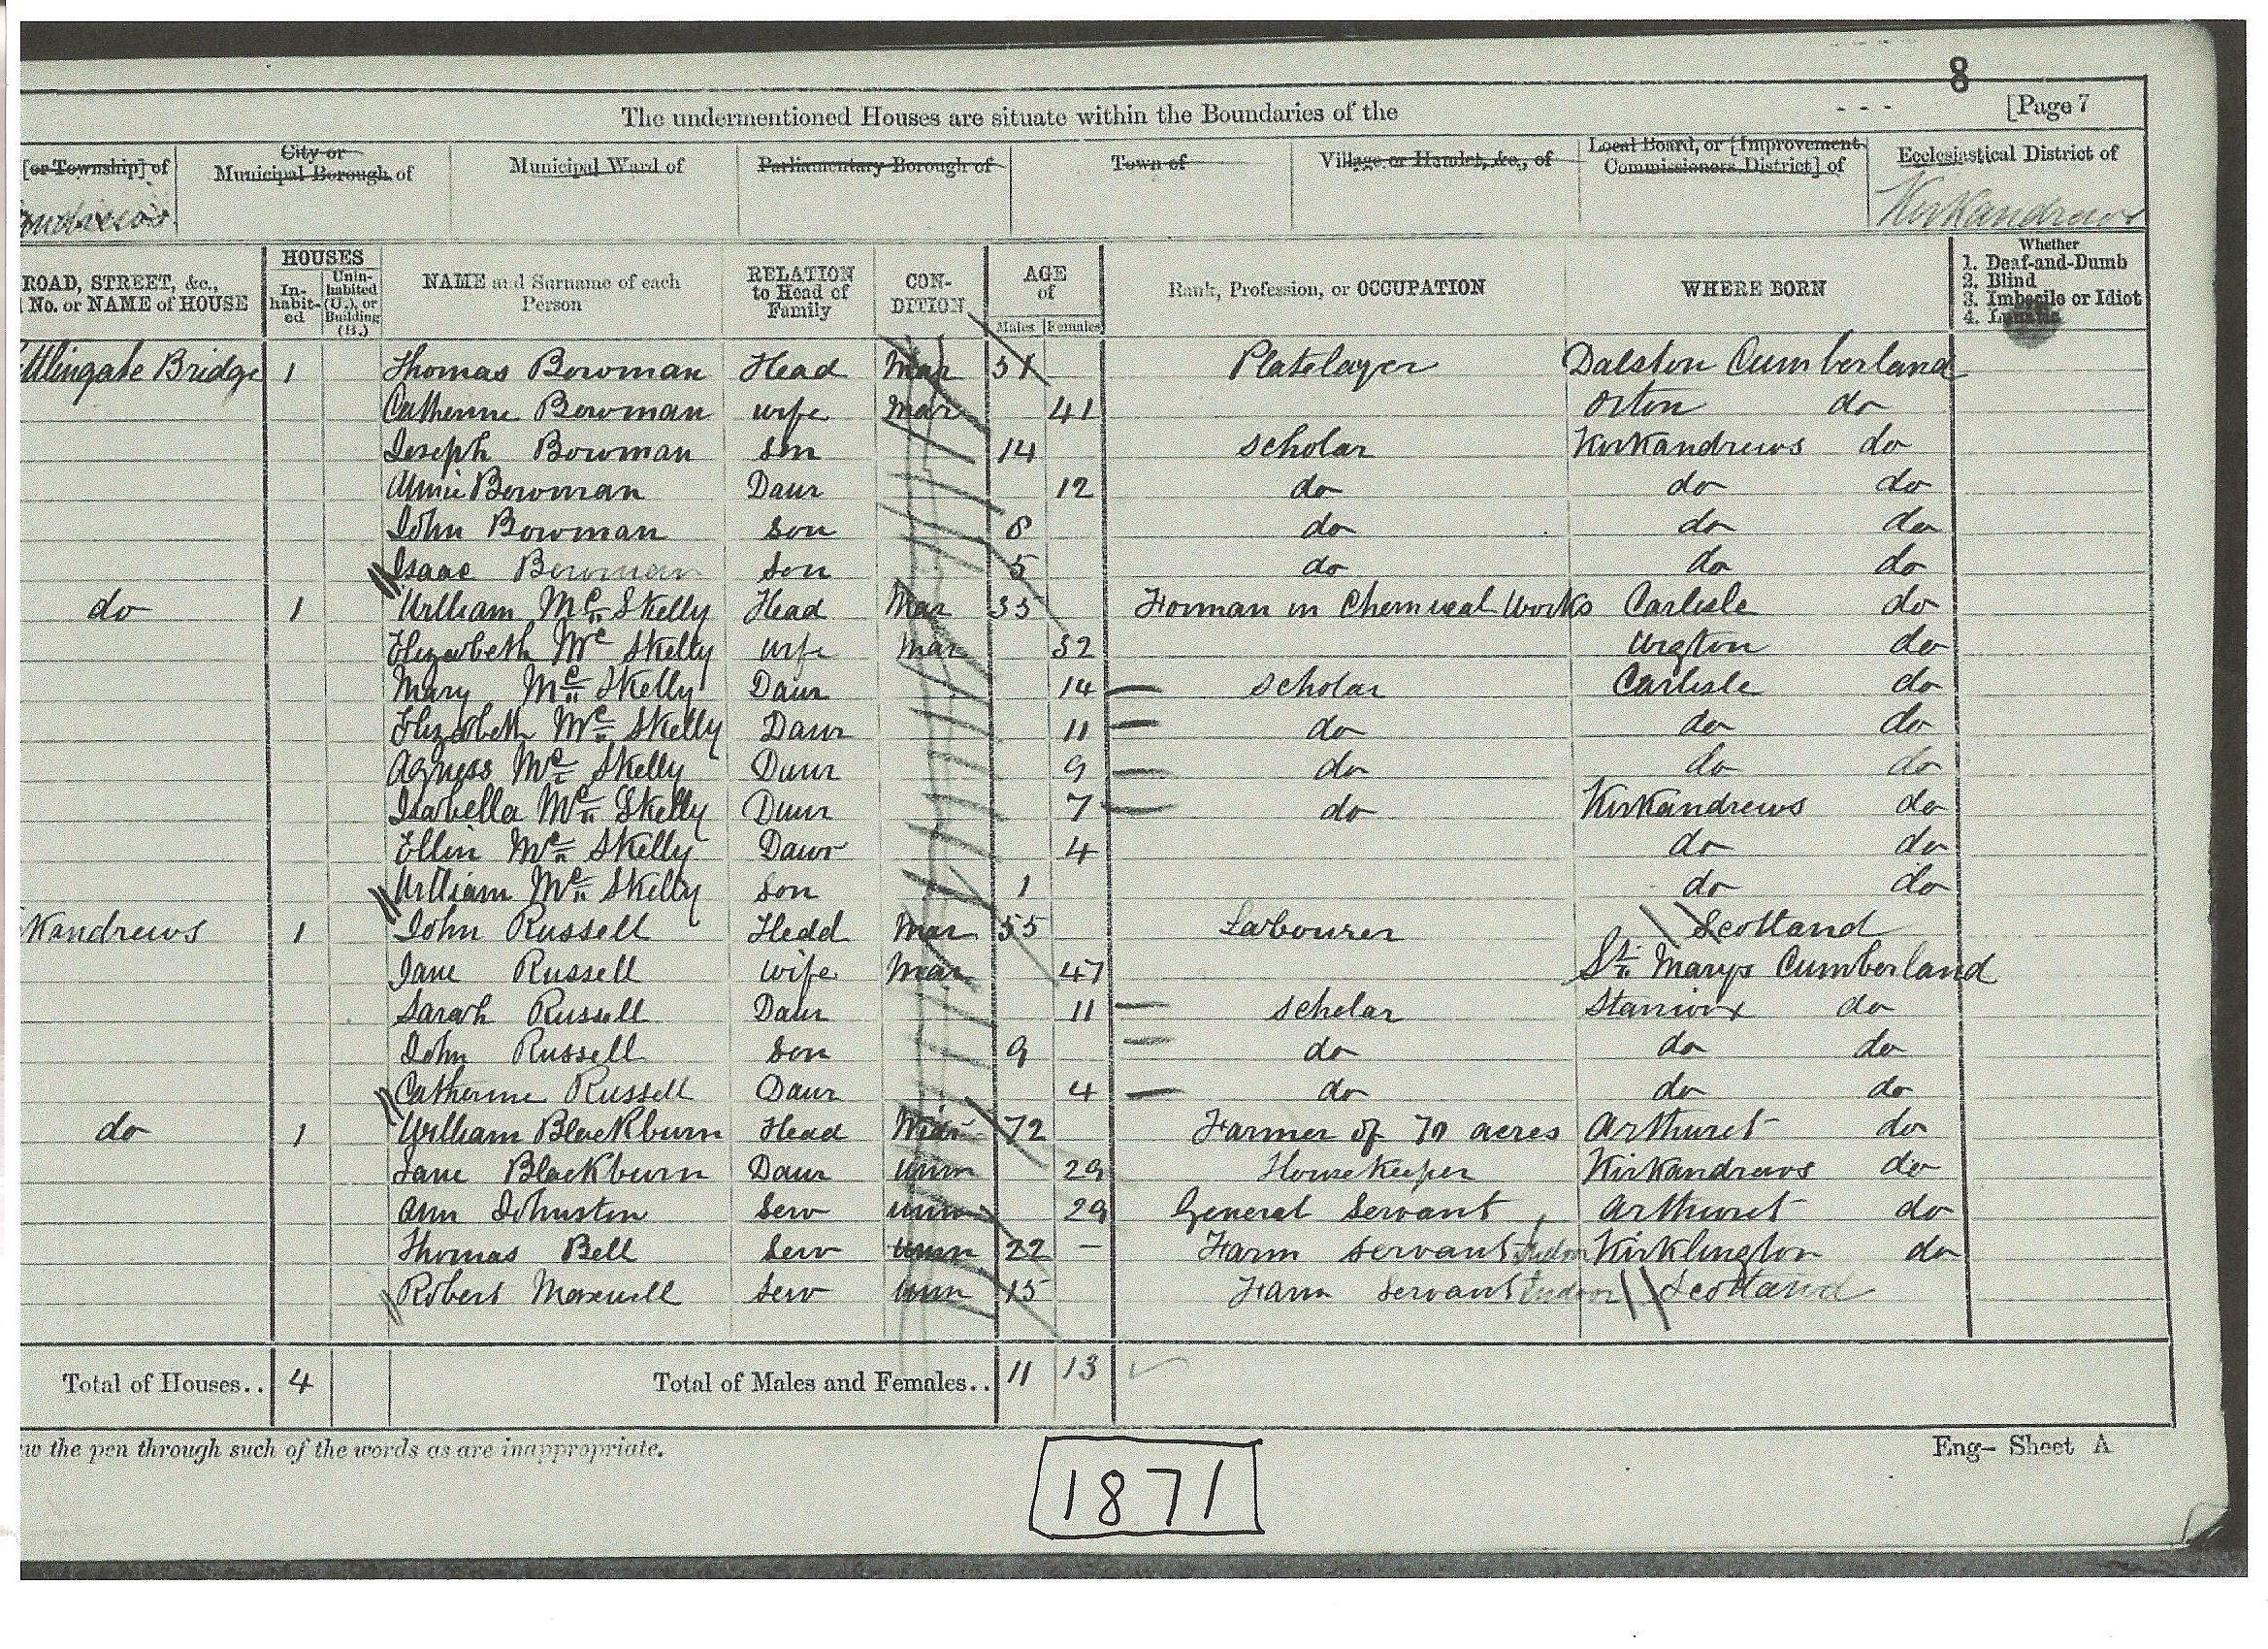 8
The undermentioned Houses are situate within the Boundaries of the [Page 7
[or Township] of City or Municipal Borough of Municipal Ward of Parliamentary Borough of Town of Village or Hamlet, &c., of Local Board, or [Improvement Commissioners District] of Ecclesiastical District of
Kirkandrews
ROAD, STREET, &c., No. or NAME of HOUSE HOUSES In-habit-ed Unin-habited (U.), or Building (B.) NAME and Surname of each Person RELATION to Head of Family CON-DITION AGE of Males Females Rank, Profession, or OCCUPATION WHERE BORN Whether 1. Deaf-and-Dumb 2. Blind 3. Imbecile or Idiot 4. Lunatic
ttlingate Bridge 1 Thomas Bowman Head Mar 51 Platelayer Dalston Cumberland
Catherine Bowman wife Mar 41 Orton do
Joseph Bowman Son 14 Scholar Kirkandrews do
Annie Bowman Daur 12 do do do
John Bowman Son 8 do do do
Isaac Bowman Son 5 do do do
do 1 William Mc Skelly Head Mar 35 Forman in Chemical Works Carlisle do
Elizabeth Mc Skelly wife Mar 32 Wigton do
Mary Mc Skelly Daur 14 Scholar Carlisle do
Elizabeth Mc Skelly Daur 11 do do do
Agness Mc Skelly Daur 9 do do do
Isabella Mc Skelly Daur 7 do Kirkandrews do
Ellin Mc Skelly Daur 4 do do
William Mc Skelly Son 1 do do
kandrews 1 John Russell Head Mar 55 Labourer Scotland
Jane Russell wife Mar 47 St. Marys Cumberland
Sarah Russell Daur 11 Scholar Stanwix do
John Russell Son 9 do do do
Catherine Russell Daur 4 do do do
do 1 William Blackburn Head Widr 72 Farmer of 70 acres Arthuret do
Jane Blackburn Daur Unm 29 Housekeeper Kirkandrews do
Ann Johnston Serv Unm 29 General Servant Arthuret do
Thomas Bell Serv Unm 22 – Farm Servant Indoor Kirklington do
Robert Maxwell Serv Unm 15 Farm Servant Indoor Scotland
Total of Houses.. 4 Total of Males and Females.. 11 13
the pen through such of the words as are inappropriate.
Eng– Sheet A
1871